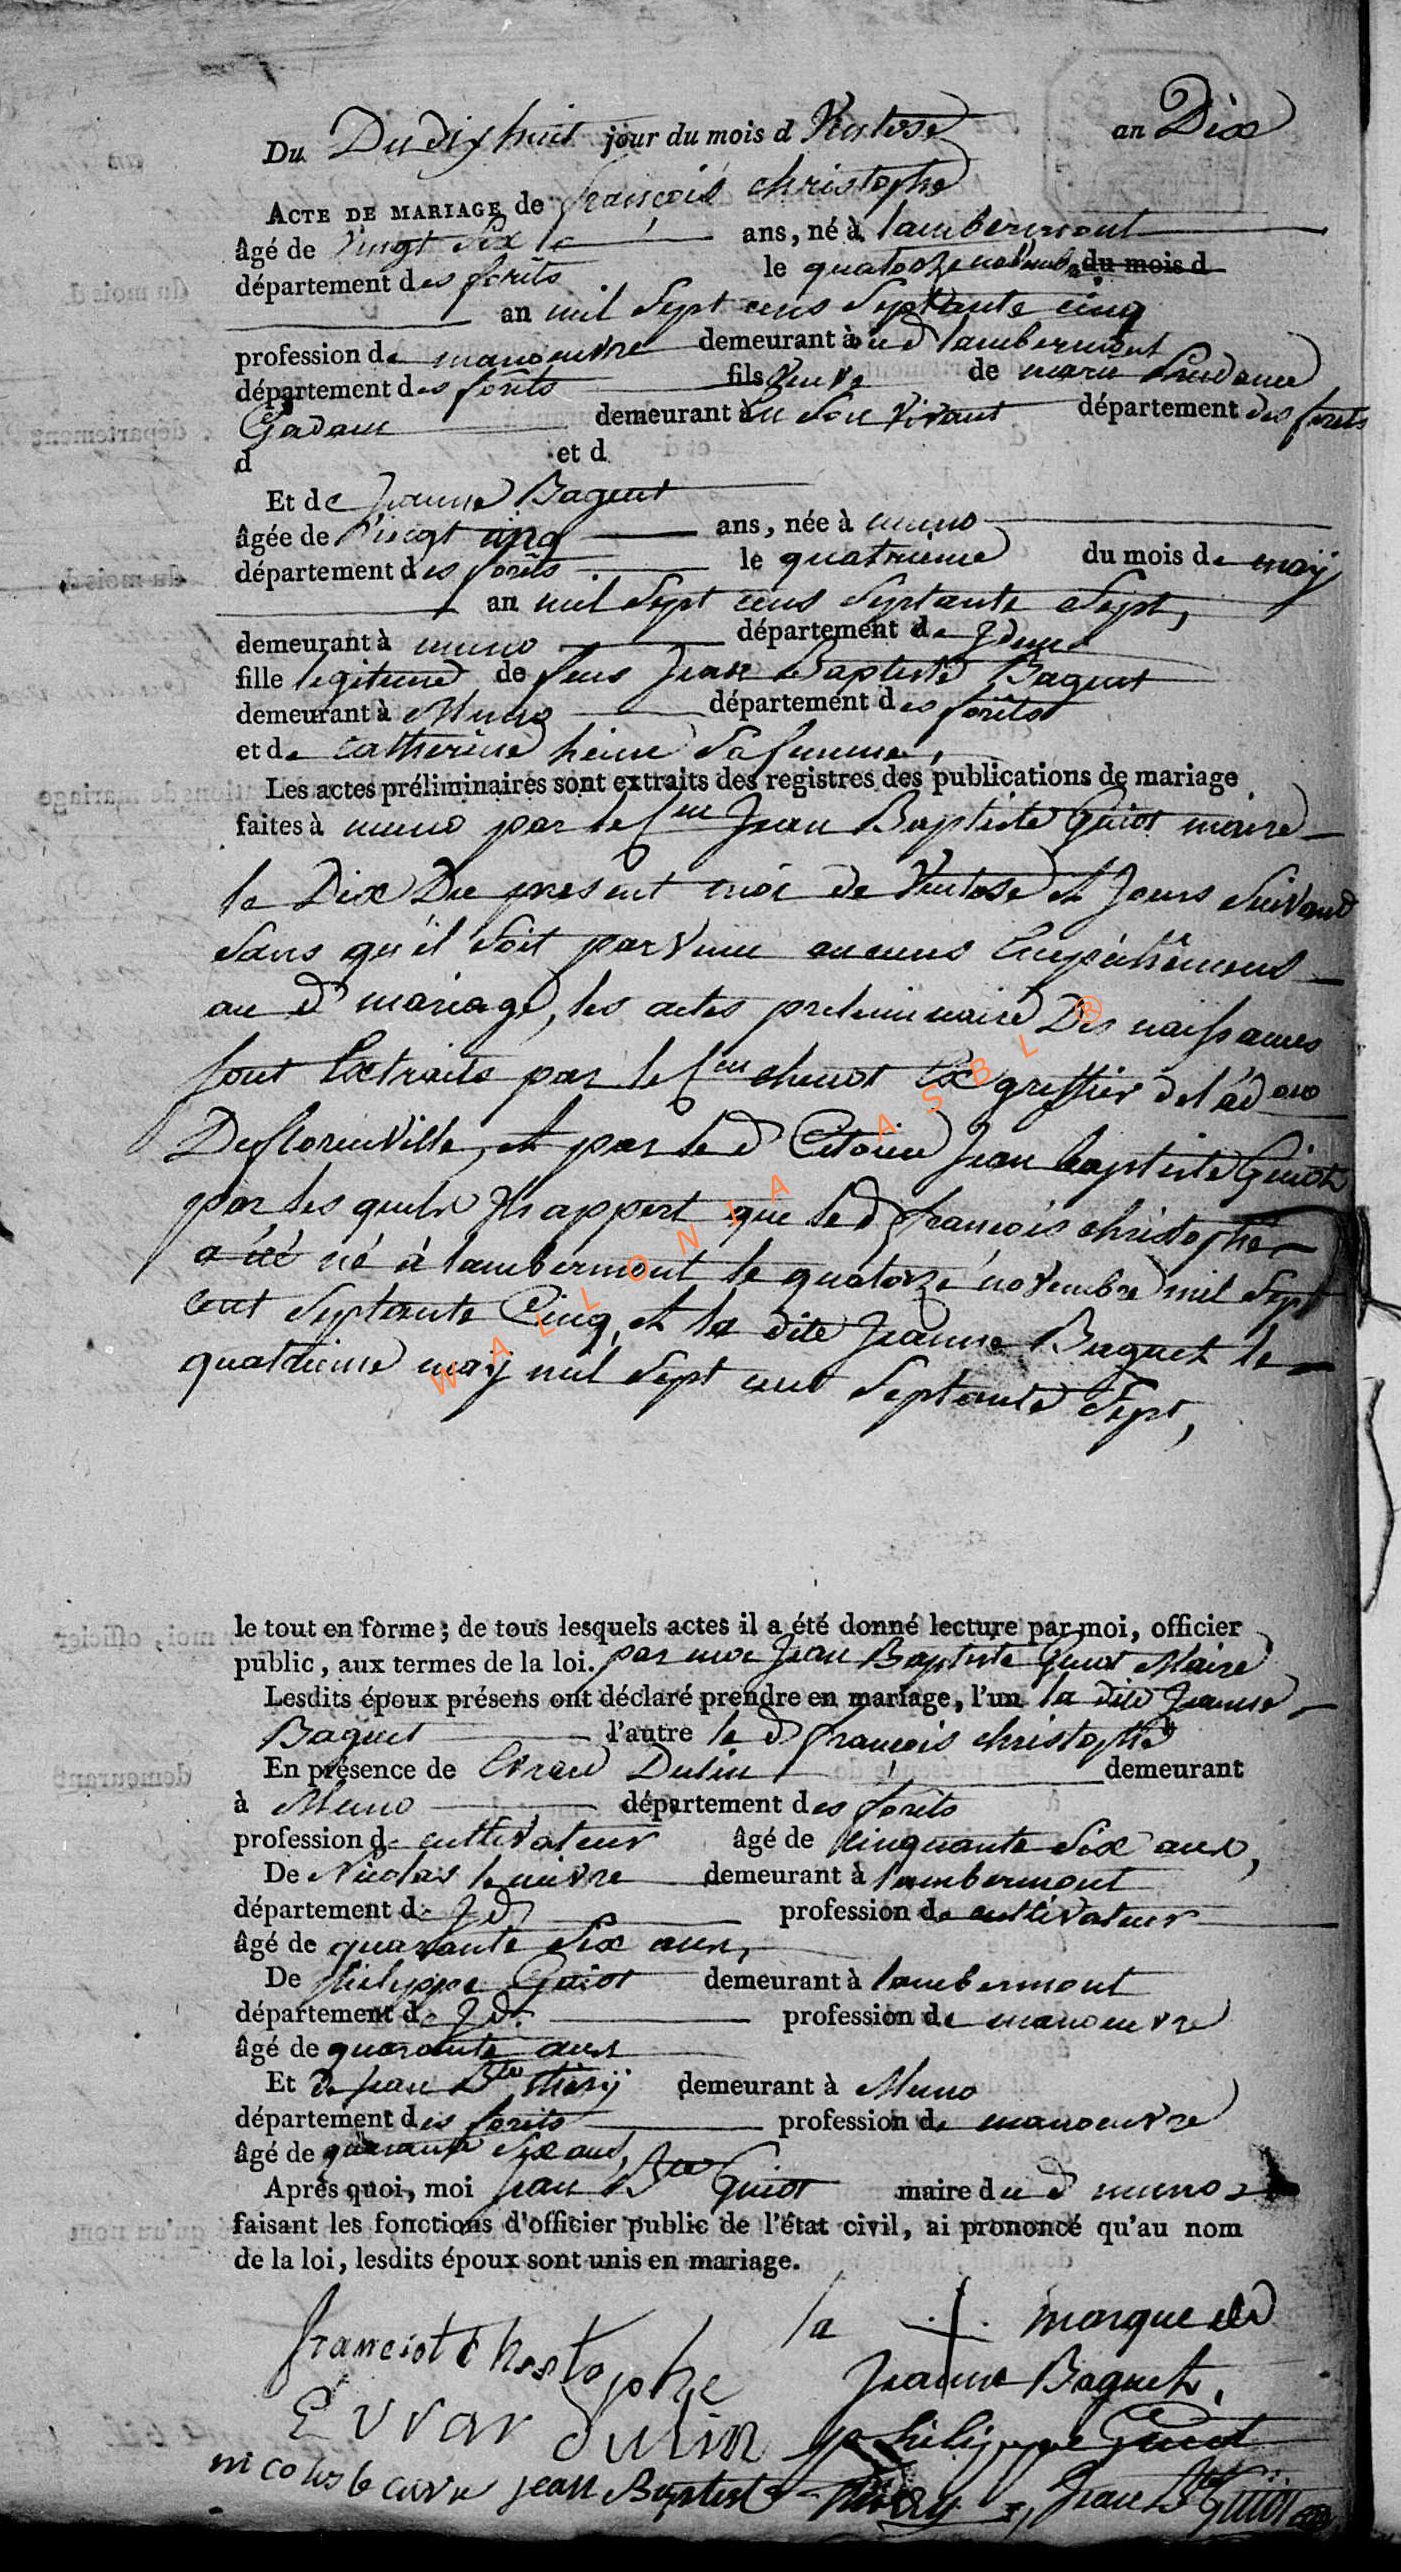 Du Du dix huit jour du mois d Ventose an Dix
ACTE DE MARIAGE de françois christophe
âgé de vingt six ans, né à lambermont
département des forêts le quatorze novembre du mois d
an mil sept cens septante cinq
profession de manoeuvre demeurant à lambermont
département des forêts fils veuve de marie
demeurant à son vivant département des forets
d et d
Et de Jeanne Baguet
âgée de vingt cinq ans, née à muno
département des forêts le quatrieme du mois de maÿ
an mil sept cens septante sept,
demeurant à muno département de Idem
fille legitime de feus Jean Baptiste Baguet
demeurant à Muno département des forêts
et de Catherine sa femme,
Les actes préliminaires sont extraits des registres des publications de mariage
faites à muno par le Cen Jean Baptiste Guiot maire
le Dix Du present moi de Ventose et Jours suivant
sans qu'il soit parvenu aucuns Empechemens
au d mariage, les actes preliminaire Des naissances
sont Extraits par le Cen Ex greffier de l'ad on
Deflorenville, et par le d Citoien Jean baptiste Guiot
par les quels Il appert que le d françois christophe
a été né à lambermont le quatorze novembre mil sept
cent septante Cinq, et la dite Jeanne Baguet le
quatrieme maÿ mil sept cent septante sept,
le tout en forme; de tous lesquels actes il a été donné lecture par moi, officier
public, aux termes de la loi. par moi Jean Baptiste Guiot Maire
Lesdits époux présens ont déclaré prendre en mariage, l'un la dite Jeanne
Baguet l'autre le d françois christophe
En présence de Evrard Dulin demeurant
à Muno département des forêts
profession de cultivateur âgé de cinquante six ans,
De Nicolas lecuivre demeurant à lambermont
département de Id profession de cultivateur
âgé de quarante six ans,
De philippe Guiot demeurant à lambermont
département de Id. profession de manoeuvre
âgé de quarante ans
Et De Jean Bte thierÿ demeurant à Muno
département des forêts profession de manoeuvre
âgé de quarante six ans,
Après quoi, moi Jean Bte Guiot maire du d muno
faisant les fonctions d'officier public de l'état civil, ai prononcé qu'au nom
de la loi, lesdits époux sont unis en mariage.
la marque de
Jeanne Baguet,
Evrar dulin philippe Guiot
jean Baptist thiery Jean Bte Guiot
WALLONIA ASBL ®